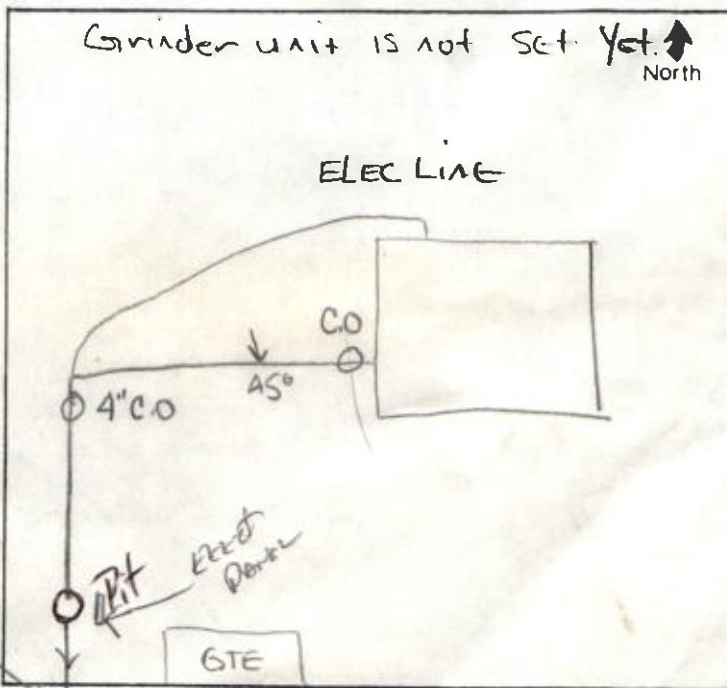 Grinder unit is not set yet.
North
ELEC LINE
C.O
45°
4" C.O
Elect
Panel
Pit
GTE